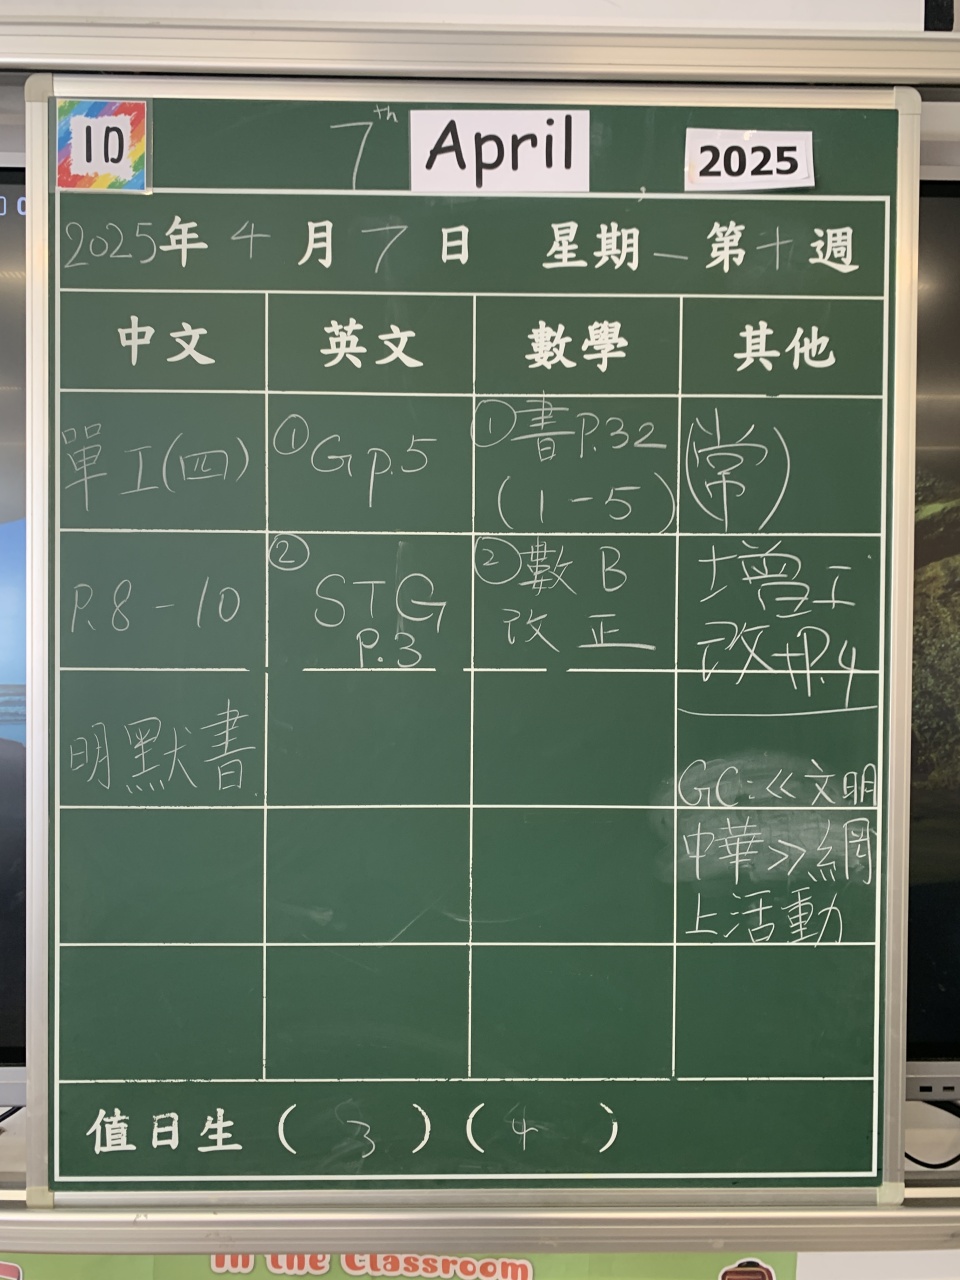 1D
7th April, 2025
2025年4月7日 星期一 第十週
中文 英文 數學 其他
單工(四)
P.8-10
明默書
①G p.5
②STG
P.3
①書P.32
(1-5)
②數B
改正
(常)
增工
改+P.4
GC:≪文明
中華≫網
上活動
值日生 ( 3 ) ( 4 )
In the Classroom